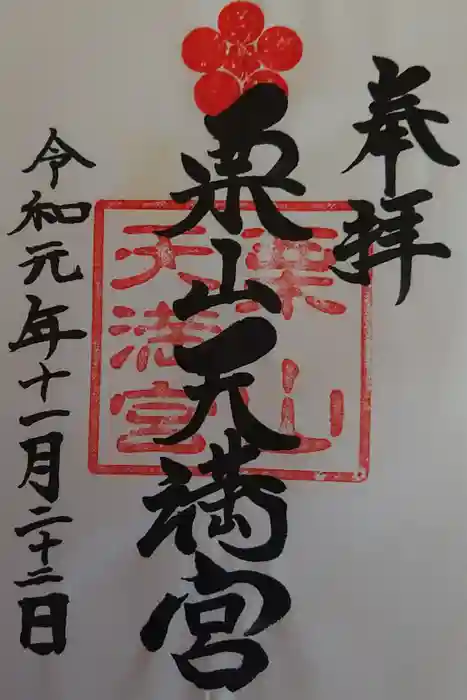 奉拝
栗山天満宮
栗山
天満宮
令和元年十一月二十二日